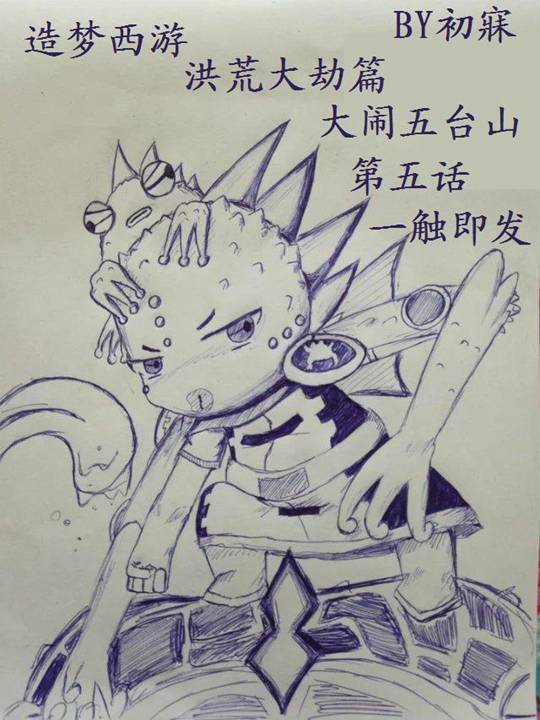 造梦西游
BY初寐
洪荒大劫篇
大闹五台山
第五话
一触即发